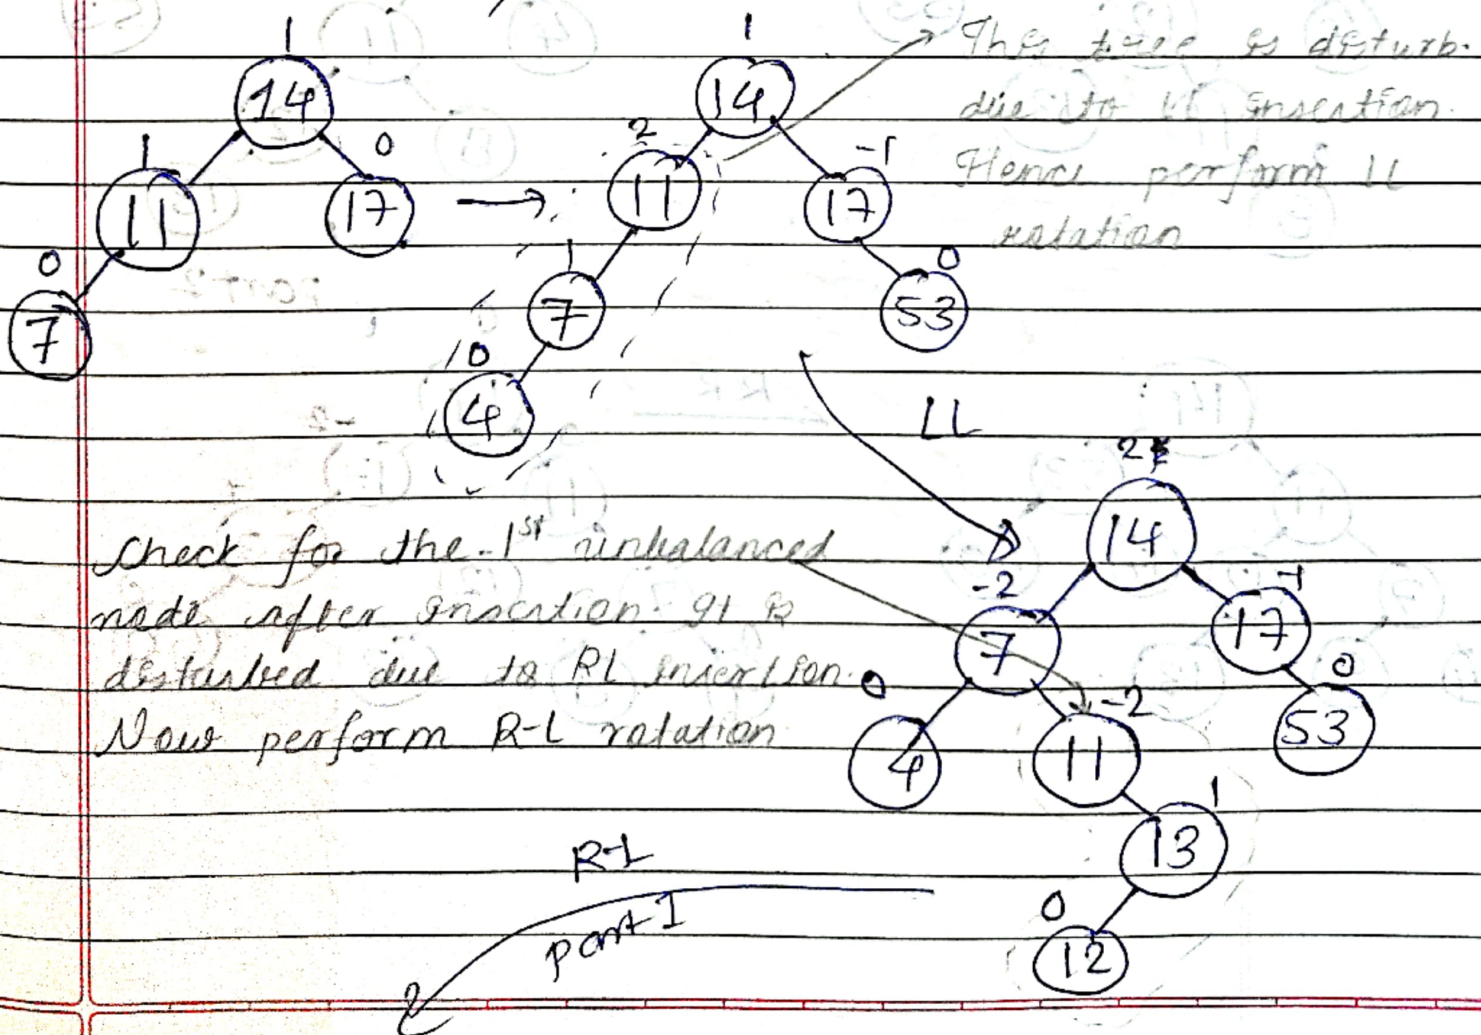 1
14
1
11
0
17
0
7
1
14
2
11
-1
17
1
7
0
53
0
4
This tree is disturb.
due to LL insertion.
Hence perform LL
rotation
LL
2
14
-2
7
-1
17
0
4
-2
11
0
53
1
13
0
12
Check for the 1st unbalanced
node after insertion. It is
disturbed due to RL insertion.
Now perform R-L rotation
R-L
part-1